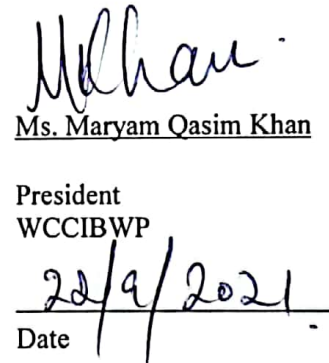 Ms. Maryam Qasim Khan
President
WCCIBWP
22/9/2021
Date